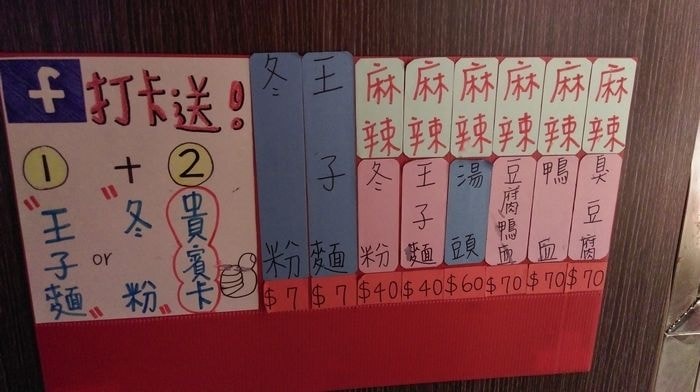 f 打卡送!
1 + 2
"王子麵" or "冬粉" 貴賓卡
冬粉 $7
王子麵 $7
麻辣冬粉 $40
麻辣王子麵 $40
麻辣湯頭 $60
麻辣豆腐鴨血 $70
麻辣鴨血 $70
麻辣臭豆腐 $70